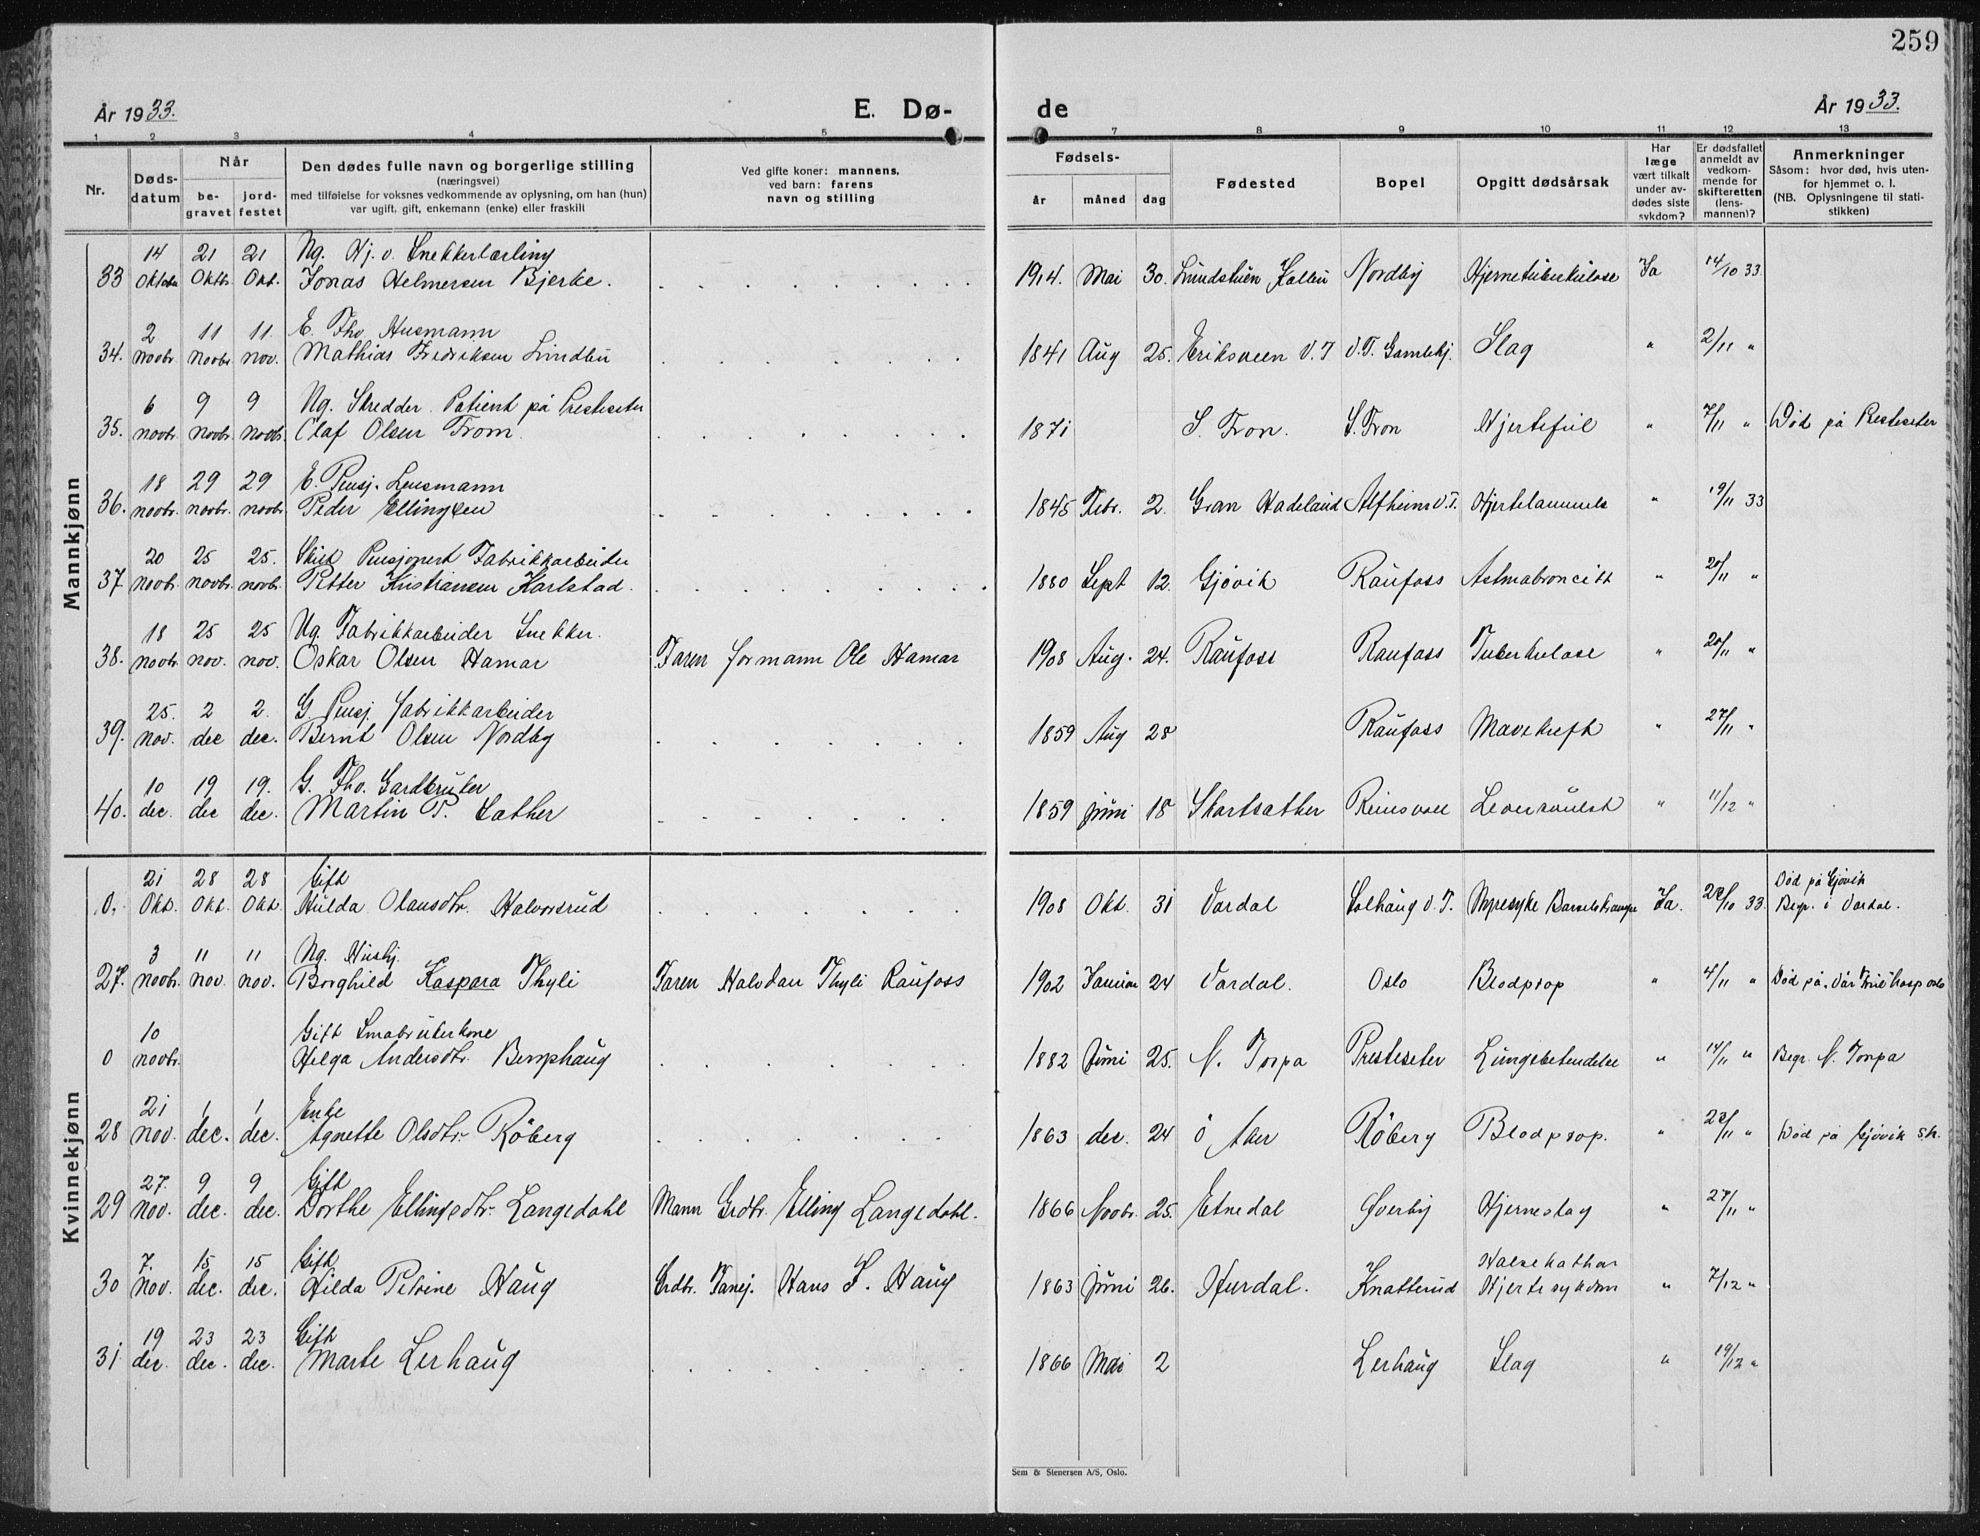 259
År 1933. E. Dø- de År 1933.
1 2 3 4 5 7 8 9 10 11 12 13
Nr. Døds-datum Når be-gravet jord-festet Den dødes fulle navn og borgerlige stilling (næringsvei) med tilføielse for voksnes vedkommende av oplysning, om han (hun) var ugift, gift, enkemann (enke) eller fraskill Ved gifte koner: mannens, ved barn: farens navn og stilling Fødsels- år måned dag Fødested Bopel Opgitt dødsårsak Har læge vært tilkalt under av-dødes siste sykdom? Er dødsfallet anmeldt av vedkom-mende for skifteretten (lens-mannen)? Anmerkninger Såsom: hvor død, hvis uten-for hjemmet o. l. (NB. Oplysningene til stati-stikken)
Mannkjønn
14 21 21 Ug. Hj. v. Snekkerlærling
33 Oktober Oktbr. Okt. Jonas Helmersen Bjerke. 1914. Mai 30. Lundstuen Kolbu Nordby Hjernetuberkulose Ja 14/10 33
2 11 11. E. Fhv. Husmann
34. novbr. novbr. nov. Mathias Fredriksen Lindbu 1841 Aug 25. Eriksveen V.T V.T. Gamlekj. Slag " 2/11 "
6 9 9 Ug. Skredder. Patient på Presteseter
35. novbr. novbr. novbr. Olaf Olsen From. 1871 S. Fron. S. Fron Hjertefeil " 7/11 " Død på Presteseter
18 29 29 E. Pensj. Lensmann
36. novbr. novbr. novbr. Peder Ellingsen 1845 Febr. 2. Gran Hadeland Alfheim V.T. Hjertelammels " 19/11 33
20 25 25. Skilt Pensjonert Fabrikkarbeider
37 novbr. novbr. novbr. Petter Kristiansen Karlstad. 1880 Sept 12. Gjøvik Raufoss Astmabroncitt " 20/11 "
18 25 25 Ug. Fabrikkarbeider Snekker.
38. novbr. nov. nov. Oskar Olsen Hamar Faren formann Ole Hamar 1908 Aug. 24. Raufoss Raufoss Tuberkulose " 20/11 "
25. 2 2 G. Pensj. fabrikkarbeider
39. nov. dec dec. Bernt Olsen Nordby 1859 Aug 28 Raufoss Mavekreft " 27/11 "
10 19 19. G. Fhv. Gardbruker
40. dec. dec dec. Martin P. Sather 1859 juni 18 Skartsather Reinsvoll Leversvulst " 11/12 "
Kvinnekjønn
21 28 28 Gift
0. Okt. Okt. Okt. Hulda Olausdtr. Halvorsrud 1908 Okt. 31 Vardal Solhaug V.T. Nyresyke Barselskrampe Ja. 28/10 33. Død på Gjøvik Begr. i Vardal.
3 11 11 Ug. Hushj.
27. novbr. nov. nov. Borghild Kaspara Thyli Faren Halvdan Thyli Raufoss 1902 Januar 24 Vardal. Oslo Blodprop " 4/11 " Død på Vår Frue hosp oslo
10 Gift Småbrukerkone
0 novbr. Helga Andersdtr. Bemphaug 1882 Juni 25. N. Torpa Presteseter Lungebetendelse " 14/11 " Begr. N. Torpa
21 1 1 Enke
28 nov. dec. dec. Agnette Olsdtr. Röberg 1863 dec. 24 Röberg Blodprop. " 23/11 " Død på Gjøvik sh.
27. 9 9 Gift
29 nov. dec. dec. Dorthe Ellingsdtr. Langedahl Mann Grdbr. Elling Langedahl. 1866 Novbr. 25. Etnedal Øverby Hjerneslag " 27/11 "
7. 15 15 Gift
30 nov. dec. dec. Hilda Petrine Haug Grdbr. Hans F. Haug 1863 juni 26. Hurdal. Knatterud Halsekathar Hjertesykdom " 7/12 "
19 23 23 Gift
31 dec. dec. dec. Marte Lerhaug 1866 Mai 2 Lerhaug Slag " 19/12 "
Sem & Stenersen A/S, Oslo.